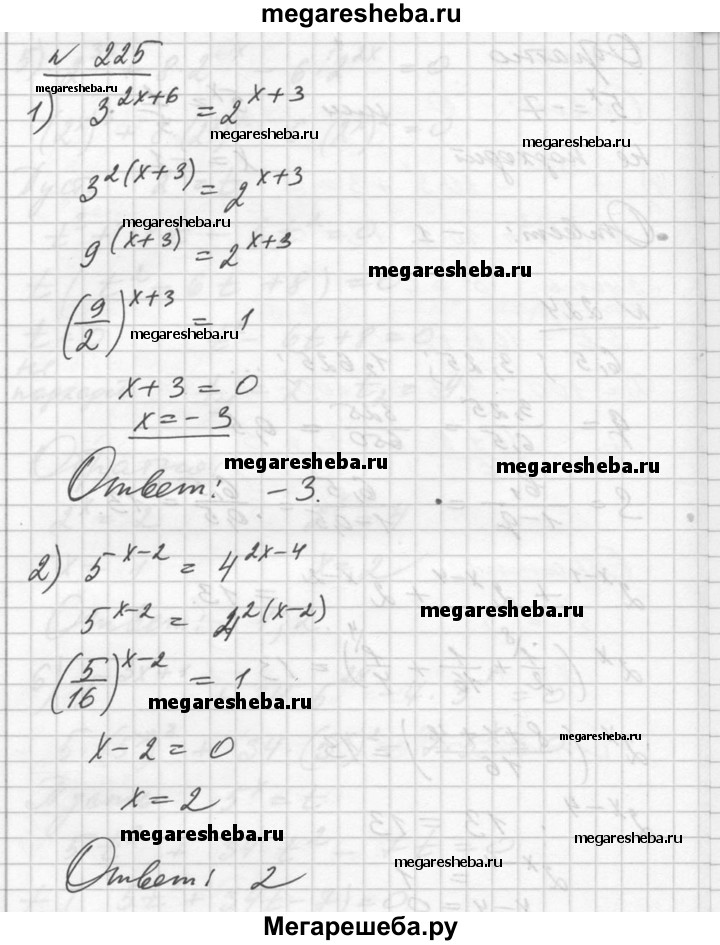 megaresheba.ru
№ 225
megaresheba.ru
1) 3^{2x+6} = 2^{x+3}
megaresheba.ru
megaresheba.ru
3^{2(x+3)} = 2^{x+3}
megaresheba.ru
9^{(x+3)} = 2^{x+3}
megaresheba.ru
(9/2)^{x+3} = 1
megaresheba.ru
x+3 = 0
x = -3
megaresheba.ru
megaresheba.ru
Ответ: -3.
2) 5^{x-2} = 4^{2x-4}
5^{x-2} = 4^{2(x-2)}
megaresheba.ru
(5/16)^{x-2} = 1
megaresheba.ru
x-2 = 0
megaresheba.ru
x = 2
megaresheba.ru
megaresheba.ru
Ответ: 2
megaresheba.ru
Мегарешеба.ру